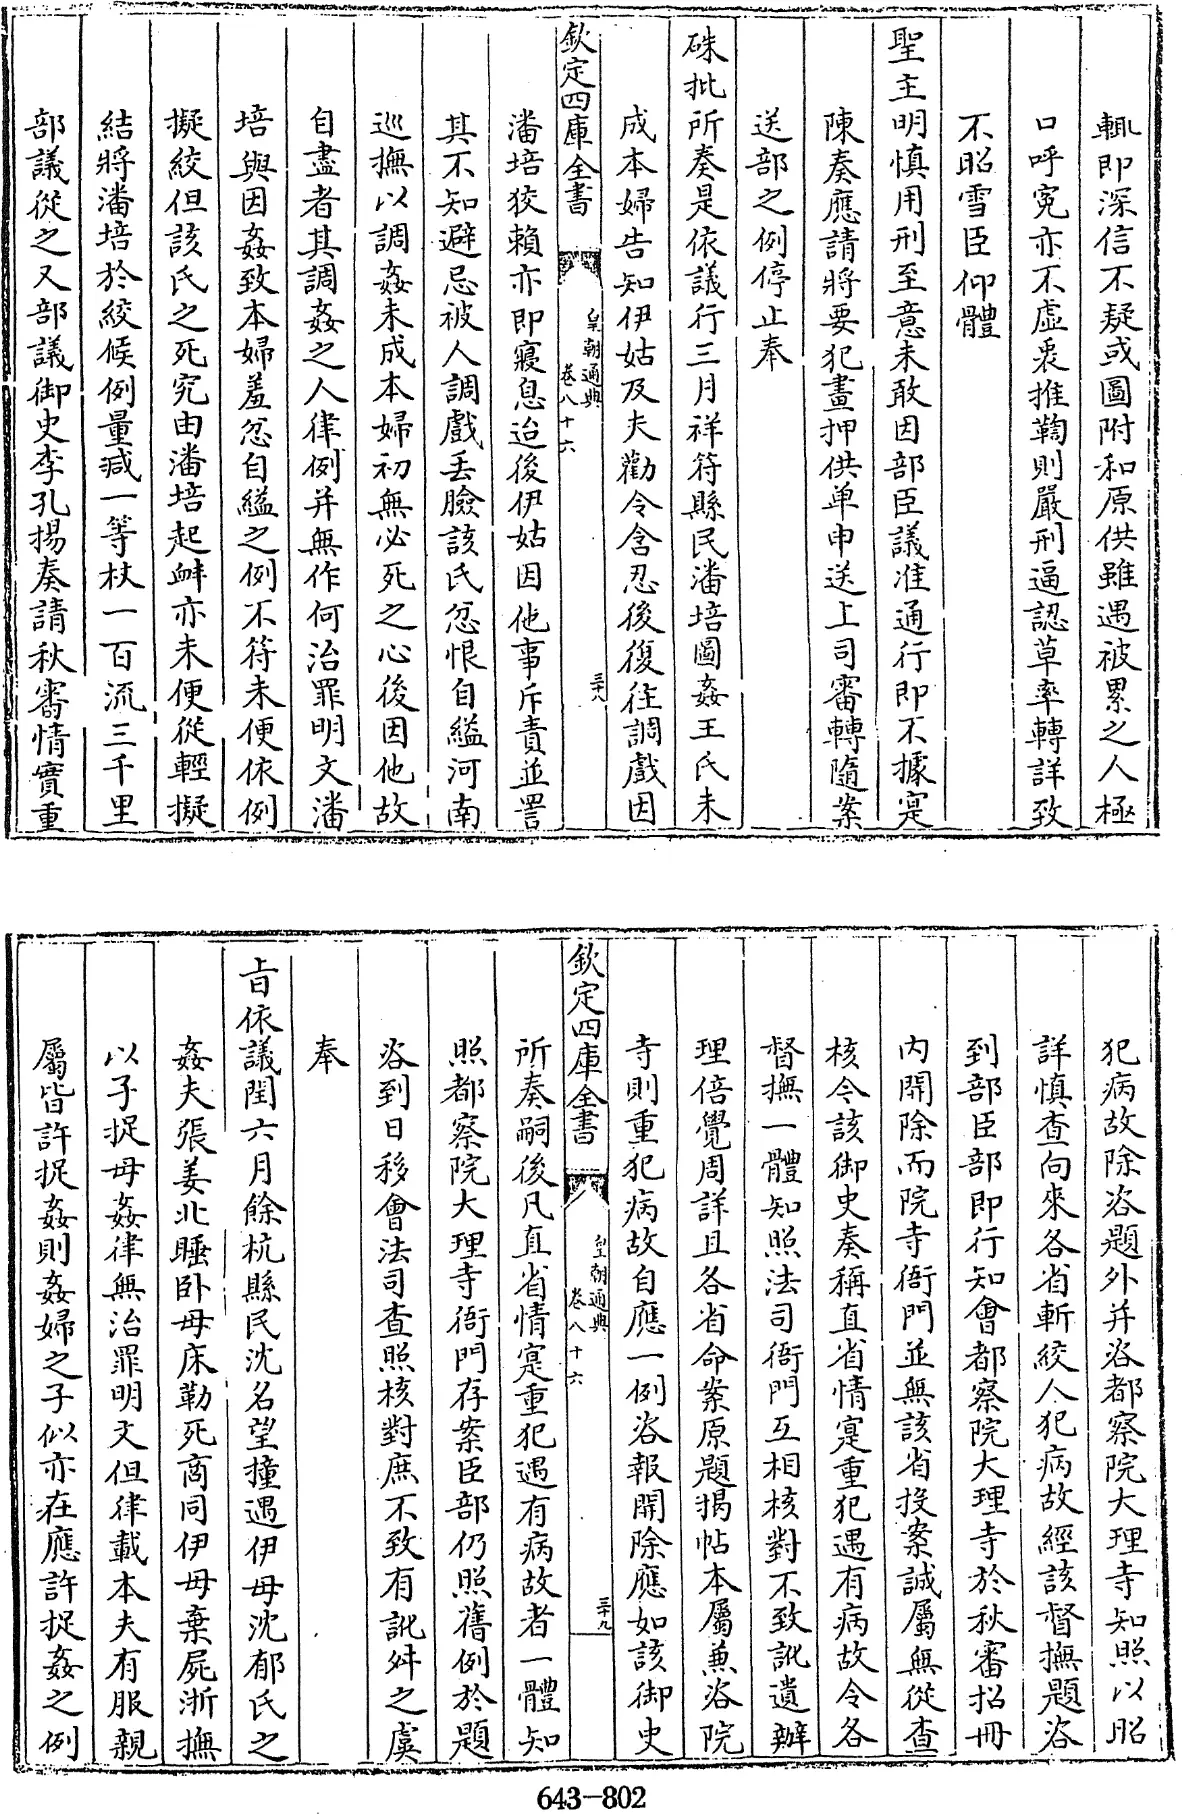 輒即深信不疑或圖附和原供雖遇被累之人極
口呼寃亦不虛衷推鞫則嚴刑逼認草率轉詳致
不昭雪臣仰體
聖主明慎用刑至意未敢因部臣議准通行即不據寔
陳奏應請將要犯畫押供单申送上司審轉隨案
送部之例停止奉
硃批所奏是依議行三月祥符縣民潘培圖姦王氏未
成本婦告知伊姑及夫勸令含忍後復往調戲因
欽定四庫全書
皇朝通典
卷八十六
三十八
潘培狡賴亦即寢息迨後伊姑因他事斥責並詈
其不知避忌被人調戲丢臉該氏忿恨自縊河南
巡撫以調姦未成本婦初無必死之心後因他故
自盡者其調姦之人律例并無作何治罪明文潘
培與因姦致本婦羞忿自縊之例不符未便依例
擬絞但該氏之死究由潘培起衅亦未便從輕擬
結將潘培於絞候例量減一等杖一百流三千里
部議從之又部議御史李孔揚奏請秋審情實重
犯病故除咨題外并咨都察院大理寺知照以昭
詳慎查向來各省斬絞人犯病故經該督撫題咨
到部臣部即行知會都察院大理寺於秋審招冊
内開除而院寺衙門並無該省投案誠屬無從查
核令該御史奏稱直省情寔重犯遇有病故令各
督撫一體知照法司衙門互相核對不致訛遺辦
理倍覺周詳且各省命案原題揭帖本屬兼咨院
寺則重犯病故自應一例咨報開除應如該御史
欽定四庫全書
皇朝通典
卷八十六
三十九
所奏嗣後凡直省情寔重犯遇有病故者一體知
照都察院大理寺衙門存案臣部仍照舊例於題
咨到日移會法司查照核對庶不致有訛舛之虞
奉
旨依議閏六月餘杭縣民沈名望撞遇伊母沈郁氏之
姦夫張姜北睡卧母床勒死商同伊母棄屍浙撫
以子捉母姦律無治罪明文但律載本夫有服親
屬皆許捉姦則姦婦之子似亦在應許捉姦之例
643-802